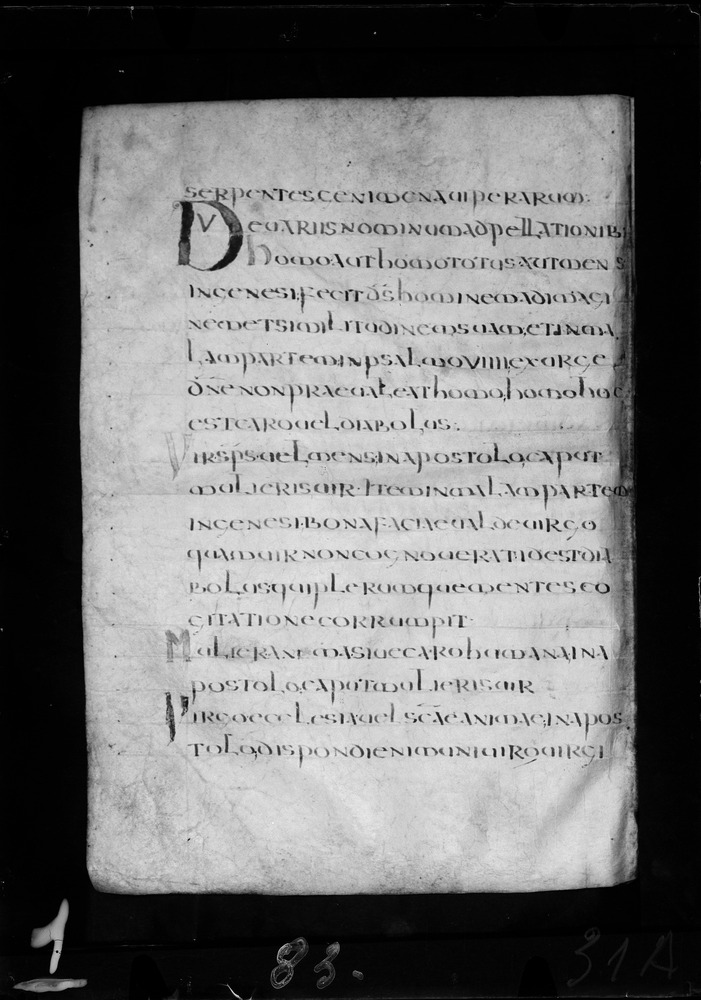 serpentes genimena uiperarum.
V De uariis nominum adpellationib
homo aut homo totus aut mens
in genesi; fecit ds hominem ad imagi
nem et similitudinem suam, et in ma
lam partem, in psalmo VIIII, exurge
dne non praeualeat homo, homo hoc
est caro uel diabolus.
Uir sps uel mens, in apostolo, caput
mulieris uir. Item in malam partem
in genesi. bona facie ualde uirgo
quam uir non cognouerat id est dia
bolus qui plerumque mentes co
gitatione corrumpit.
Mulier anima siue caro humana, in a
postolo, caput mulieris uir
Uirgo ecclesia uel scae animae, in apos
tolo, dispondi enim uni uiro uirgi
1
83.
31A